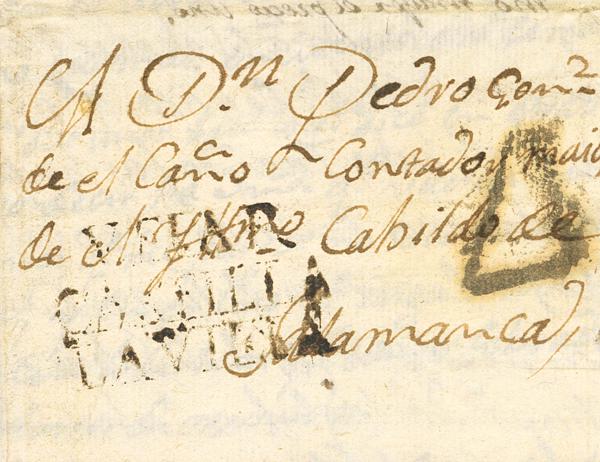 A D.n Pedro Gonz
de el Caño Contador maio
de el Yttmo Cabildo de
Salamanca
BEJAR
CASTILLA
LA VIEJA